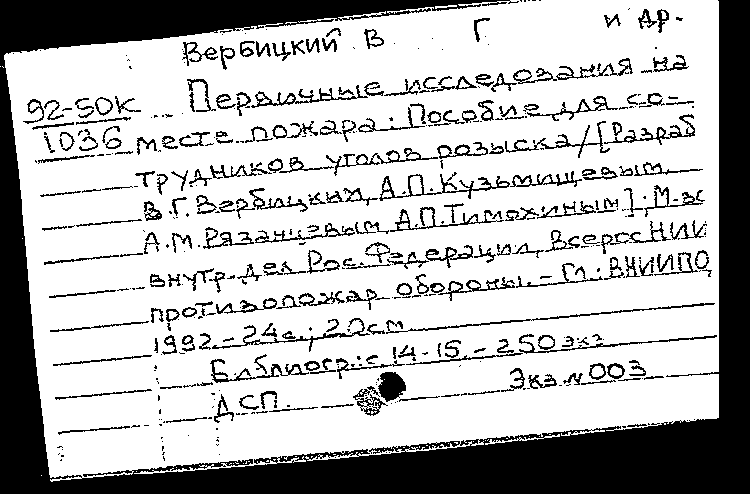 Вербицкий В Г и др.
92-50К Первичные исследования на
1036 месте пожара: Пособие для со-
трудников уголов розыска/[Разраб
В.Г.Вербицким, А.П.Кузьмищевым,
А.М.Рязанцевым, А.П.Тимохиным]; М-во
внутр-дел Рос. Федерации, Всерос НИИ
противопожар обороны. - М.: ВНИИПО,
1992. - 24с.; 20см
Библиогр.: с 14-15. - 250 экз
ДСП. Экз. N 003